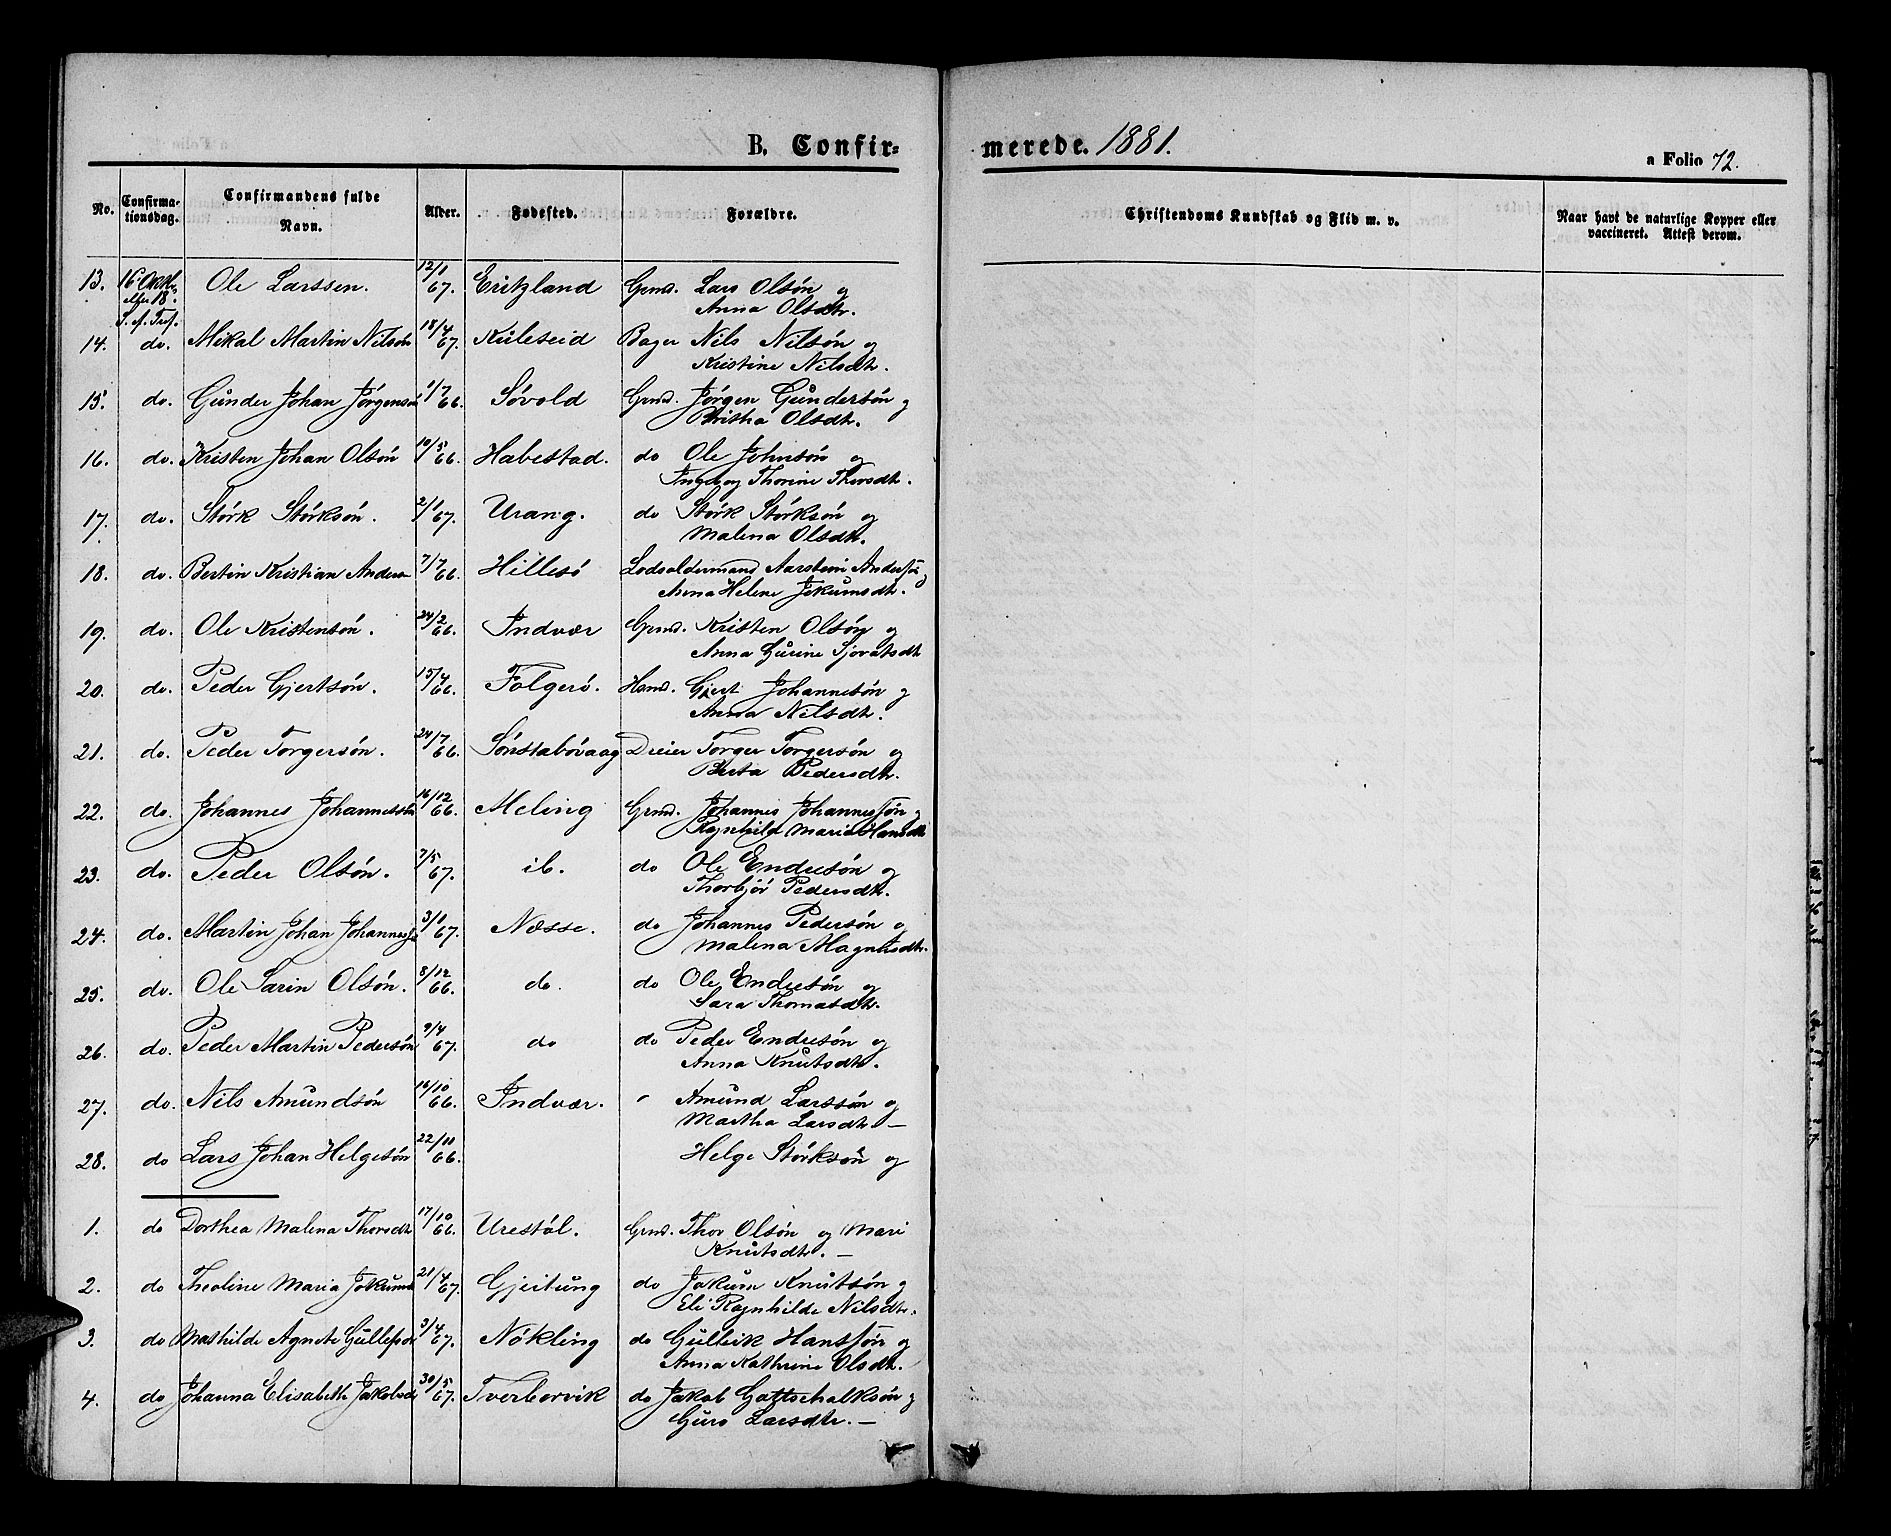 B. Confir=
merede. 1881.
a Folio 72.
No. Confirma-tionsdag. Confirmandens fulde Navn. Alder. Fødested. Forældre.
Christendoms Kundskab og Flid m. v.
Naar havt de naturlige Kopper eller vaccineret. Attest derom.
13. 16 Oktbr. efter 18 S. ef. Tref. Ole Larssen. 12/1 67. Eritzland Grmd. Lars Olsøn og
Anna Olsdtr.
14. do. Mikal Martin Nilsøn 18/4 67. Kuleseid Bager Nils Nilsøn og
Kristine Nilsdtr.
15. do. Gunder Johan Jørgensøn 1/7 66. Søvold Grmd. Jørgen Gundersøn og
Britha Olsdtr.
16. do. Kristen Johan Olsøn 10/5 66. Habestad. do Ole Johnsøn og
Thorine Thorsdtr.
17. do. Størk Størksøn. 2/1 67. Urang. do Størk Størksøn og
Malena Olsdtr.
18. do. Bertin Kristian Anders 7/7 66. Hillesø Lodsoldermand Aarstein Andersøn
Anna Helene Jokumsdtr.
19. do. Ole Kristensøn. 24/2 66. Indvær Grmd. Kristen Olsøn og
Anna Gurine Sjovatsdtr
20. do. Peder Gjertsøn. 15/4 66. Folgerø. Hmd. Gjert Johannesøn og
Anna Nilsdtr.
21. do. Peder Torgersøn. 24/7 66. Sønstabøvaag Dreier Torger Torgersøn og
Berta Pedersdtr.
22. do. Johannes Johannessøn 16/12 66. Meling Grmd. Johannes Johannessøn og
Ragnhild Maria Hansdtr
23. do. Peder Olsøn. 7/5 67. ib. do Ole Endresøn og
Thorbjør Pedersdtr.
24. do. Martin Johan Johannessø 3/1 67. Næsse. do Johannes Pedersøn og
Malena Magnusdtr.
25. do. Ole Sarin Olsøn. 8/12 66. do. do Ole Endresøn og
Sara Thomasdtr.
26. do. Peder Martin Pedersøn 9/4 67. do do Peder Endresøn og
Anna Knutsdtr.
27. do. Nils Amundsøn 16/10 66. Indvær. " Amund Larssøn og
Martha Larsdtr. —
28. do Lars Johan Helgesøn 22/11 66. Helge Størksøn og
1. do Dorthea Malena Thorsdtr 17/10 66. Urestøl. Grmd. Thor Olsøn og Mari
Knutsdtr. —
2. do Theoline Maria Jokums 21/4 67. Gjeitung do Jokum Knutsøn og
Eli Ragnhilde Nilsdtr.
3. do Mathilde Agnete 3/4 67. Nøkling do Gulleik Hanssøn og
Anna Kathrine Olsdtr.
4. do Johanna Elisabeth Jakobsd 30/5 67. Tverborvik do Jakob Gottschalksøn og
Guro Larsdtr. —